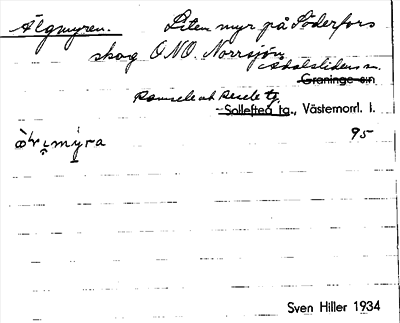 Älgmyren. Liten myr på Söderfors
skog ONO. Norrsjön,
Ådalslidens sn.
Graninge sn
Ramsele och Resele tg
Sollefteå tg., Västernorrl. l.
95
myra
Sven Hiller 1934